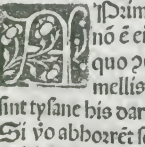 Prim
nõ ē ei
quo ꝯ
mellis
sint tysane his dar
Si ṽo abhorrēt s